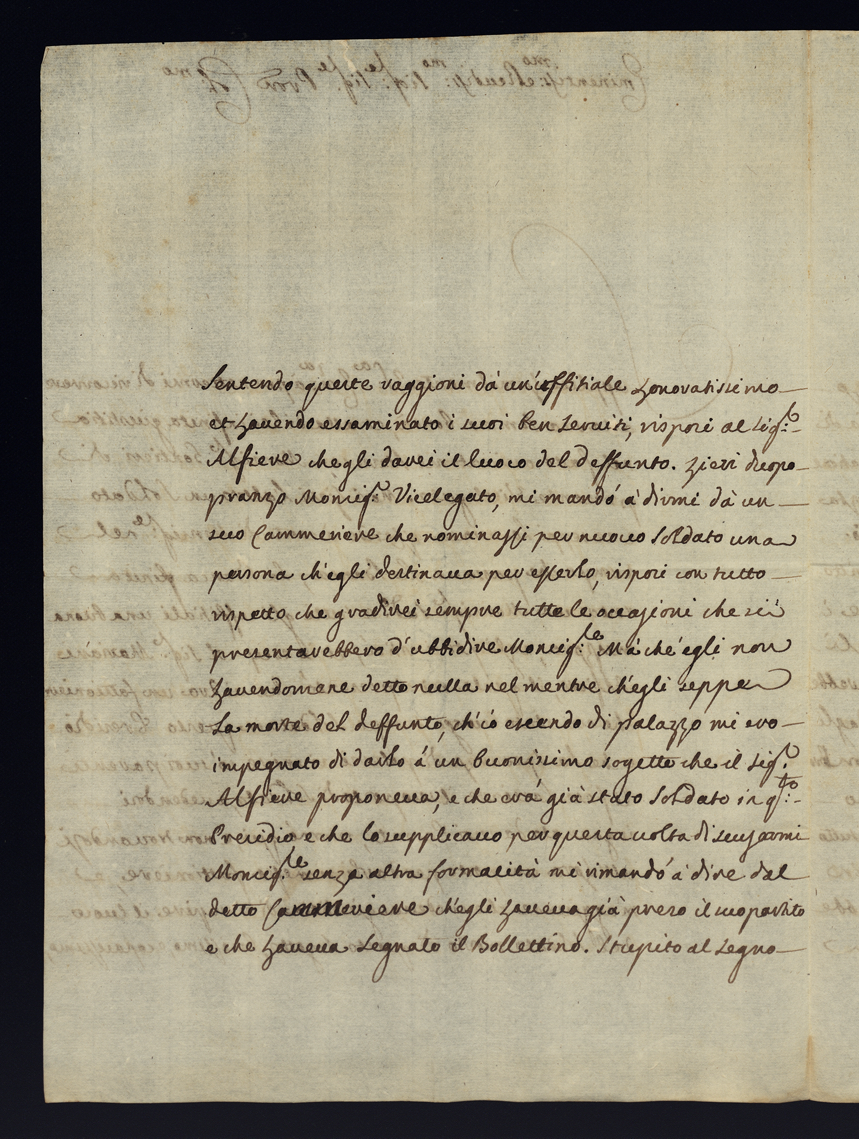 Sentendo queste raggioni dà un'uffitiale honoratissimo
et havendo essaminato i suoi ben serviti, risposi al Sig.re
Alfiere che gli darei il luoco del deffunto. Hieri dopo
pranzo Monsig.r Vicelegato, mi mandó á dirmi dà un
suo Cammeriere che nominassi per nuouo Soldato una
persona ch'egli destinaua per esserlo, risposi con tutto
rispetto che gradirei sempre tutte le occasioni che si
presentarebbero d'ubbidire Monsig.re Má ch'egli non
havendomene detto nulla nel mentre ch'egli seppe
La morte del deffunto, ch'io escendo di palazzo mi ero
impegnato di darlo á un buonissimo sogetto che il Sig.r
Alfiere proponeua, e che era giá stato Soldato in q.to
Presidio e che lo supplicauo per questa uolta di scusarmi
Monsig.re senza altra formalitá mi rimandó á dire dal
detto Cammeriere ch'egli haueua già preso il suo partito
e che haueua segnato il Bollettino. Stupito al segno